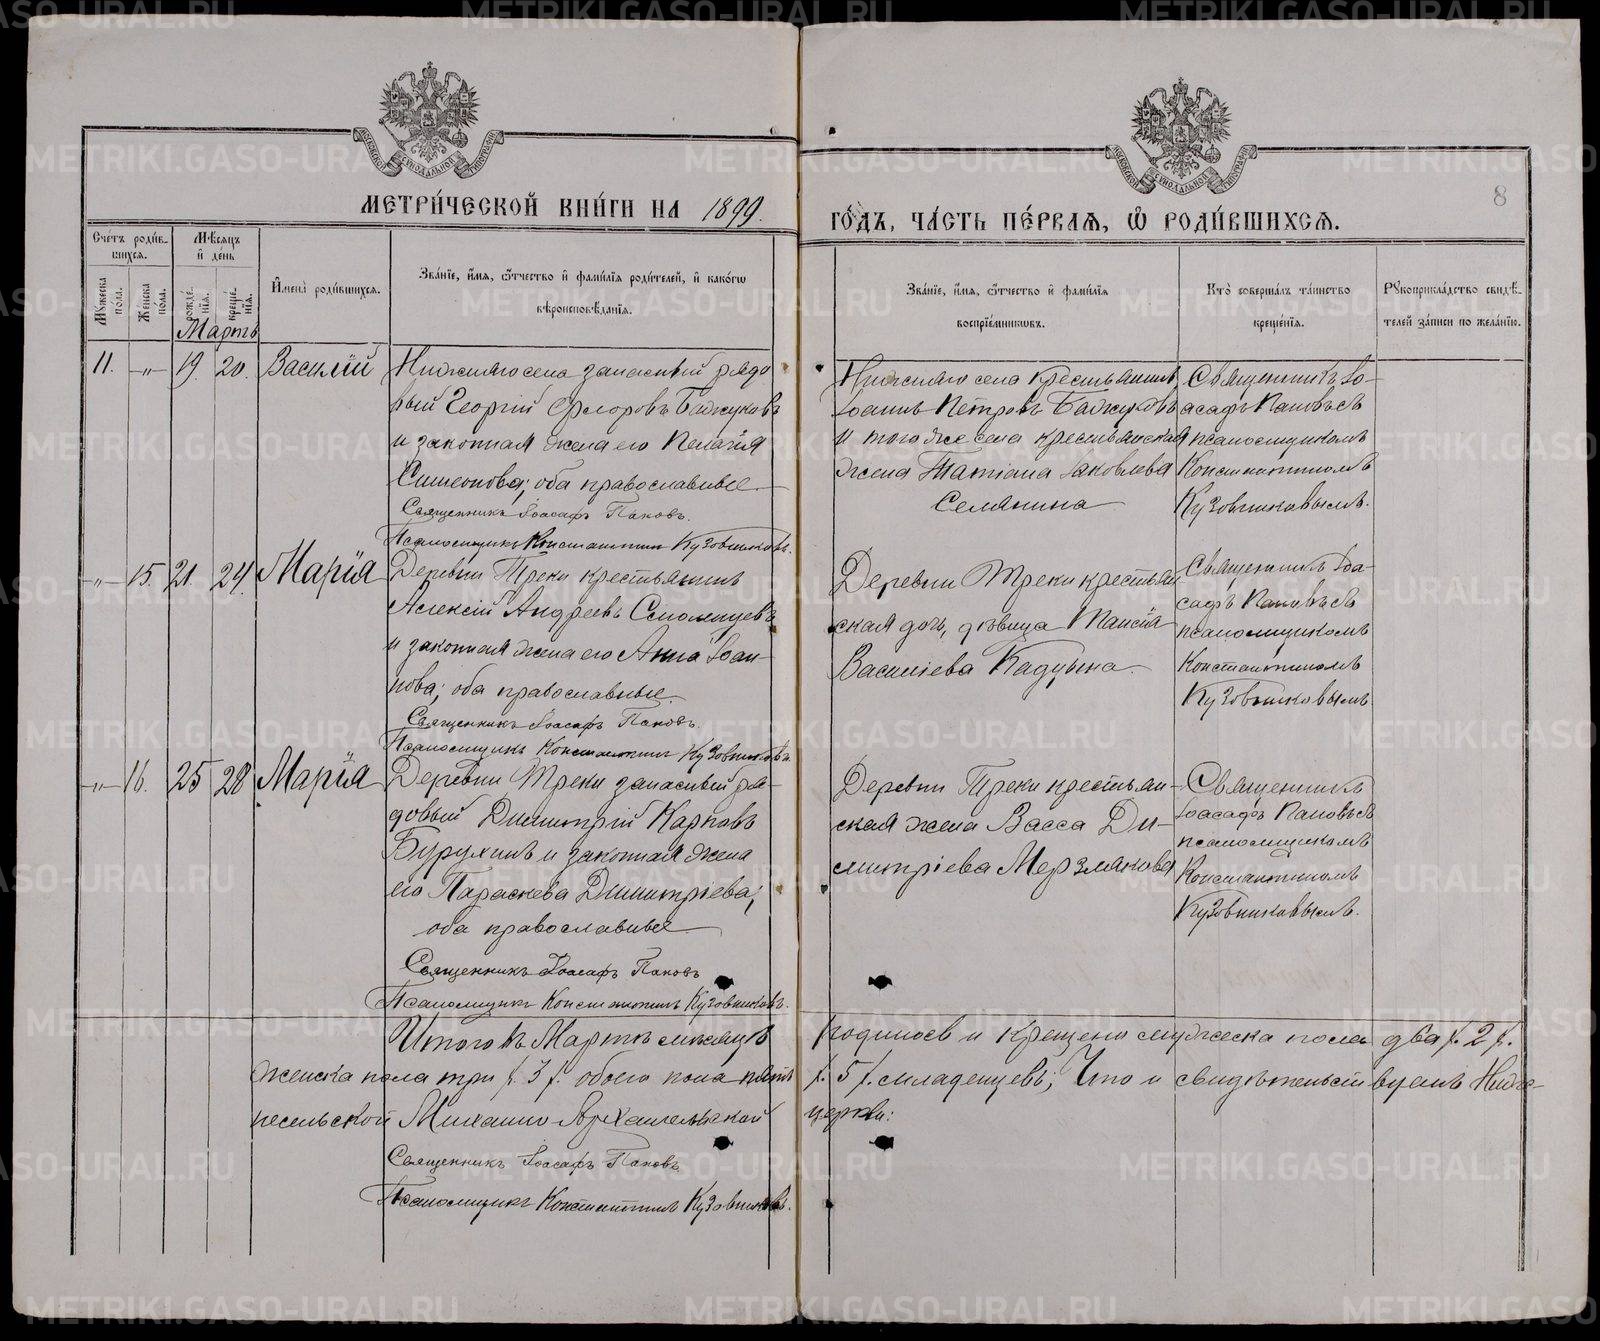 МЕТРИ́ЧЕСКОЙ КНИ́ГИ НА 1899.
ГО́ДЪ, ЧА́СТЬ ПЕ́РВАЯ, Ѡ҆ РОДИ́ВШИХСЯ.
8
Сче́тъ роди́вшихся.
Му́жеска по́ла.
Же́нска по́ла.
Мѣ́сяцъ и҆ де́нь
рожде́нїѧ.
креще́нїѧ.
И҆мена̀ роди́вшихсѧ.
Зва́нїе, и҆́мѧ, ѻ҆́тчество и҆ фами́лїѧ роди́телей, и҆ како́гѡ
вѣроисповѣ́данїѧ.
Зва́нїе, и҆́мѧ, ѻ҆́тчество и҆ фами́лїѧ
воспрїе́мниковъ.
Кто̀ соверша́лъ та́инство
креще́нїѧ.
Рꙋкоприкла́дство свидѣ́-
телей за́писи по жела́нїю.
Мартъ
11. —„— 19. 20. Василій
Нижняго села запасный рядо
вый Георгій Ѳедоровъ
и законная жена его Пелагія
Симеонова; оба православные
Священникъ Іоасафъ Пановъ.
Псаломщикъ Константинъ Кузовниковъ.
Нижняго села крестьянинъ
Іоаннъ Петровъ
и того же села крестьянская
жена Татіана Іаковлева
Семянина
Священникъ Іо-
асафъ Пановъ съ
псаломщикомъ
Константиномъ
Кузовниковымъ.
—„— 15. 21. 24. Марія
Деревни Треки крестьянинъ
Алексій Андреевъ Смоленцевъ
и законная жена его Анна Іоан-
нова; оба православные
Священникъ Іоасафъ Пановъ.
Псаломщикъ Константинъ Кузовниковъ.
Деревни Треки крестьян
ская дочь, дѣвица Таисія
Василіева Кадцына
Священникъ Іоа-
сафъ Пановъ съ
псаломщикомъ
Константиномъ
Кузовниковымъ
—„— 16. 25 28 Марія
Деревни Треки запасный ря-
довый Димитрій Карповъ
Бурухинъ и законная жена
его Параскева Димитріева;
оба православные
Священникъ Іоасафъ Пановъ
Псаломщикъ Константинъ Кузовниковъ.
Деревни Треки крестьян-
ская жена Васса Ди-
митріева Мерзлякова
Священникъ
Іоасафъ Пановъ съ
псаломщикомъ
Константиномъ
Кузовниковымъ.
Итого въ Мартѣ мѣсяцѣ родилось и крещено мужеска пола два /. 2 /.
женска пола три /. 3 /. обоего пола пять /. 5 /. младенцевъ; Что и свидѣтельствуемъ Ниж-
несельской Михаило-Архангельской церкви:
Священникъ Іоасафъ Пановъ
Псаломщикъ Константинъ Кузовниковъ.
METRIKI.GASO-URAL.RU